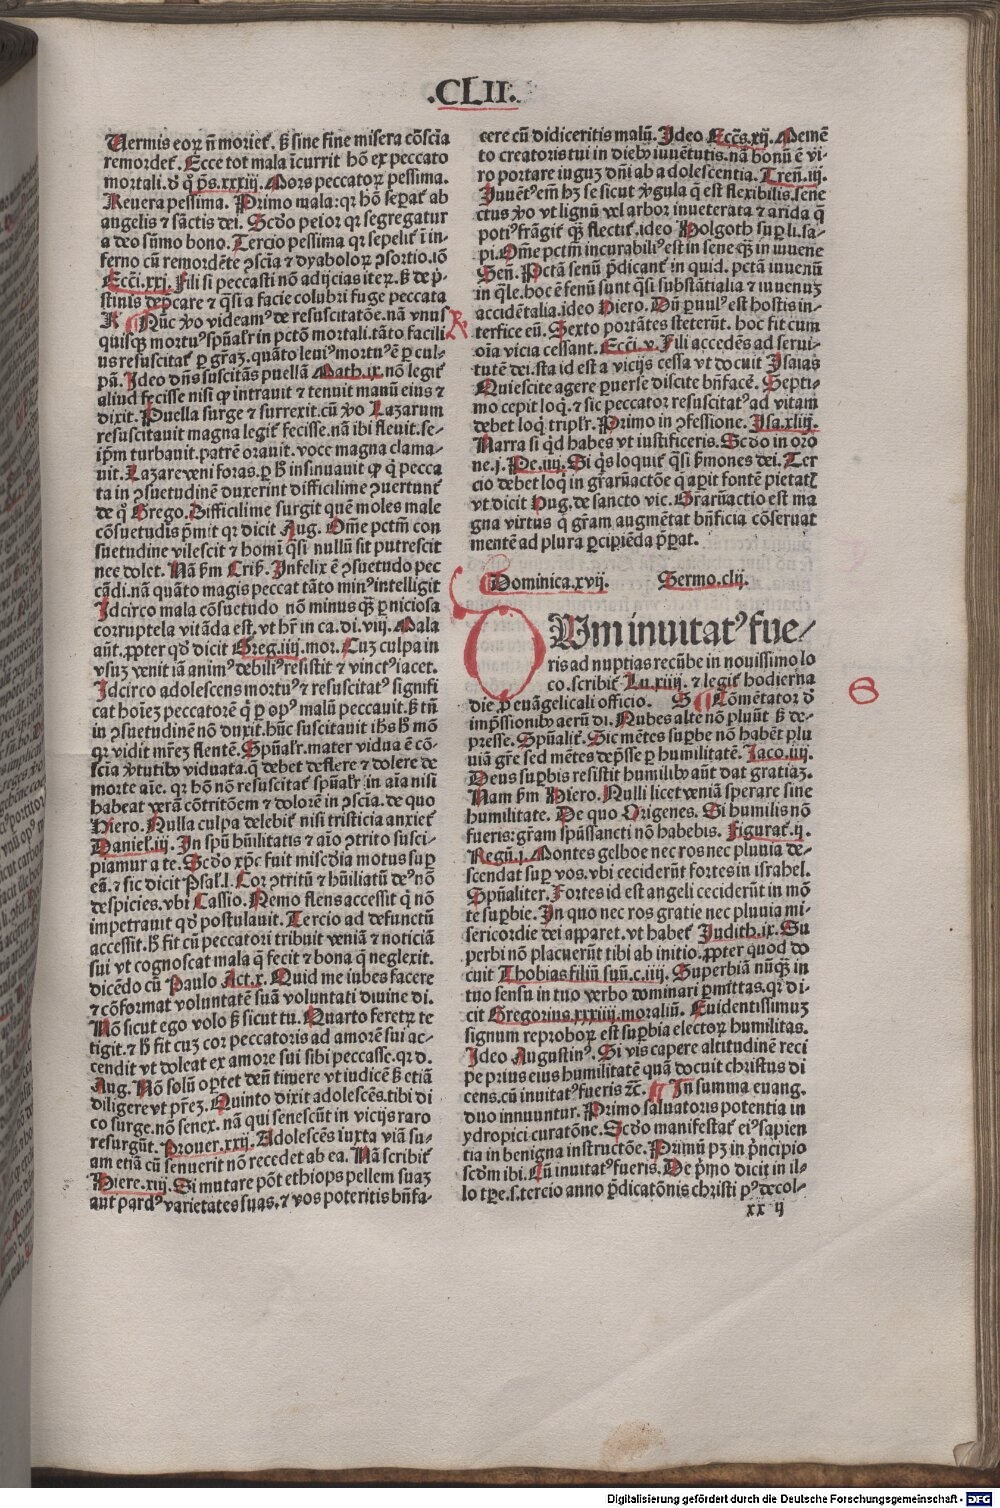 .CLII.
Uermis eoꝝ nō morieť. ꝫ sine fine misera cōscīa
remordeť. Ecce tot mala īcurrit hō ex peccato
mortali. ď ꝙ p̄s.xxxiij. Mors peccatoꝝ pessima.
Reuera pessima. Primo mala: qꝛ hō sepať ab
angelis ⁊ sāctis dei. Scďo peior qꝛ segregatur
a deo sūmo bono. Tercio pessima qꝛ sepeliť ī in-
ferno cū remordēte ꝯscīa ⁊ dyaboloꝝ ꝯsortio. iō
Ecci.xxj. Fili si peccasti nō adijcias iteꝝ. ꝫ de p̄-
stinis dep̄care ⁊ qͣsi a facie colubri fuge peccata
R Nūc ꝟo videamꝰ de resuscitatōe. nā vnus
quisqꝫ mortuꝰ spūalr in pctō mortali. tāto facili
us resuscitať ꝑ grāꝫ. quāto leuiꝰ mortuꝰ ē ꝑ cul-
pā. Ideo dn̄s suscitās puellā Math.ix. nō legiť
aliud fecisse nisi ꝙ intrauit ⁊ tenuit manū eius ⁊
dixit. Puella surge ⁊ surrexit. cū ꝟo Lazarum
resuscitauit magna legiť fecisse. nā ibi fleuit. se-
ip̄m turbauit. patrē orauit. voce magna clama-
uit. Lazare veni foras. ꝑ ħ insinuauit ꝙ ꝙ pecca
ta in ꝯsuetudinē duxerint difficilime ꝯuertunť
de ꝙ Grego. Difficilime surgit quē moles male
cōsuetudis p̄mit qꝛ dicit Aug. Om̄e pctm̄ con
suetudine vilescit ⁊ homī qͣsi nullū sit putrescit
nec dolet. Nā ẜm Criẜ. Infelix ē ꝯsuetudo pec
cādi. nā quāto magis peccat tāto minꝰ intelligit
Idcirco mala cōsuetudo nō minus qꝫ ꝑniciosa
corruptela vitāda est. vt hr̄ in ca.di.viij. Mala
aūt. ꝓpter qď dicit Greg.iiij.mor. Cuꝫ culpa in
vsuꝫ venit iā animꝰ debiliꝰ resistit ⁊ vinctꝰ iacet.
Idcirco adolescens mortuꝰ ⁊ resuscitatꝰ signifi
cat hoīeꝫ peccatorē ꝙ ꝑ opꝰ malū peccauit. ꝫ tn̄
in ꝯsuetudinē nō duxit. hūc suscitauit ihs ħ mō
qꝛ vidit mr̄eꝫ flentē. Spūalr. mater vidua ē cō-
scīa ꝟtutibꝰ viduata. ꝙ debet deflere ⁊ dolere de
morte aīe. qꝛ hō nō resuscitať spūalr in aīa nisi
habeat verā cōtritōem ⁊ dolorē in ꝯscīa. de quo
Hiero. Nulla culpa delebiť nisi tristicia anxieť
Daniel.iij. In spū hūilitatis ⁊ aīo ꝯtrito susci-
piamur a te. Scďo xp̄c fuit misc̄dia motus suꝑ
eā. ⁊ sic dicit Psal.l. Cor ꝯtritū ⁊ hūiliatū deꝰ nō
despicies. vbi Cassio. Nemo flens accessit ꝙ nō
impetrauit qď postulauit. Tercio ad defunctū
accessit. ħ fit cū peccatori tribuit veniā ⁊ noticiā
sui vt cognoscat mala ꝙ fecit ⁊ bona ꝙ neglexit.
dicēdo cū Paulo Act.x. Quid me iubes facere
⁊ cōformat voluntatē suā voluntati diuine di.
Nō sicut ego volo ꝫ sicut tu. Quarto feretꝝ te
tigit. ⁊ ħ fit cuꝫ cor peccatoris ad amorē sui ac-
cendit vt doleat ex amore sui sibi peccasse. qꝛ d.
Aug. Nō solū oꝑtet deū timere vt iudicē ꝫ etiā
diligere vt pr̄eꝫ. Quinto dixit adolescēs. tibi di
co surge. nō senex. nā qui senescūt in vicijs raro
resurgūt. Prouer.xxij. Adolescēs iuxta viā su-
am etiā cū senuerit nō recedet ab ea. Nā scribiť
Hiere.xiij. Si mutare pōt ethiops pellem suaꝫ
aut pardꝰ varietates suas. ⁊ vos poteritis bn̄fa-
cere cū didiceritis malū. Ideo Eccs.xij. Memē
to creatoris tui in diebꝰ iuuētutis. nā bonū ē vi-
ro portare iuguꝫ dn̄i ab adolescentia. Treñ.iij.
Iuuētꝰ em̄ hꝫ se sicut ꝟgula ꝙ est flexibilis. sene
ctus ꝟo vt lignū vel arbor inueterata ⁊ arida ꝙ
potiꝰ frāgiť qꝫ flectiť. ideo Holgoth suꝑ li. sa-
pi. Om̄e pctm̄ incurabiliꝰ est in sene qꝫ in iuuene
Señ. Pctā senū p̄dicanť in quid. pctā iuuenū
in qͣle. hoc ē senū sunt qͣsi substātialia ⁊ iuuenuꝫ
accidētalia. ideo Hiero. Dū ꝑuulꝰ est hostis in-
terfice eū. Sexto portātes steterūt. hoc fit cum
oīa vicia cessant. Ecci.v. Fili accedēs ad serui-
tutē dei. sta id est a vicijs cessa vt docuit Isaias
Quiescite agere ꝑuerse discite bn̄facē. Septi-
mo cepit loq. ⁊ sic peccator resuscitatꝰ ad vitam
debet loq tripłr. Primo in ꝯfessione. Isa.xliij.
Narra si qd habes vt iustificeris. Scďo in oro
ne.j. Pe.iiij. Si qs loquiť qͣsi ẜmones dei. Ter
cio debet loq in gr̄aruactōe ꝙ aꝑit fontē pietatꝭ
vt dicit Hug. de sancto vic. Graruactio est ma
gna virtus ꝙ gr̄am augmētat bn̄ficia cōseruat
mentē ad plura ꝑcipiēda p̄ꝑat.
Dominica.xvij. Sermo.clij.
CUm inuitatꝰ fue/
ris ad nuptias recūbe in nouissimo lo
co. scribiť Lu.xiiij. ⁊ legiť hodierna
die ꝓ euāgelicali officio. S Cōmētator ď
imp̄ssionibꝰ aerū di. Nubes alte nō pluūt ꝫ de-
presse. Spūaliť. Sic mētes suꝑbe nō habēt plu
uiā gr̄e sed mētes dep̄sse ꝑ humilitatē. Iaco.iiij.
Deus suꝑbis resistit humilibꝰ aūt dat gratiaꝫ.
Nam ẜm Hiero. Nulli licet veniā sperare sine
humilitate. De quo Origenes. Si humilis nō
fueris: gr̄am spūssancti nō habebis. Figurať.ij.
Regū.j. Montes gelboe nec ros nec pluuia de-
scendat suꝑ vos. vbi ceciderūt fortes in israhel.
Spūaliter. Fortes id est angeli ceciderūt in mō
te suꝑbie. In quo nec ros gratie nec pluuia mi-
sericordie dei apparet. vt habeť Judith.ix. Su
perbi nō placuerūt tibi ab initio. ꝓpter quod do
cuit Thobias filiū suū.c.iiij. Superbiā nūqꝫ in
tuo sensu in tuo verbo dominari ꝑmittas. qꝛ di-
cit Gregorius.xxxiiij.moraliū. Euidentissimuꝫ
signum reproboꝝ est suꝑbia electoꝝ humilitas.
Ideo Augustinꝰ. Si vis capere altitudinē reci
pe prius eius humilitatē quā docuit christus di
cens. cū inuitatꝰ fueris ⁊c̄. In summa euang.
duo innuuntur. Primo saluatoris potentia in
ydropici curatōne. Scďo manifestať eiꝰ sapien
tia in benigna instructōe. Primū pꝫ in p̄ncipio
scďm ibi. Cū inuitatꝰ fueris. De p̄mo dicit in il-
lo tp̄e. s. tercio anno p̄dicatōnis christi pꝰ decol-
xx ij
Digitalisierung gefördert durch die Deutsche Forschungsgemeinschaft - DFG